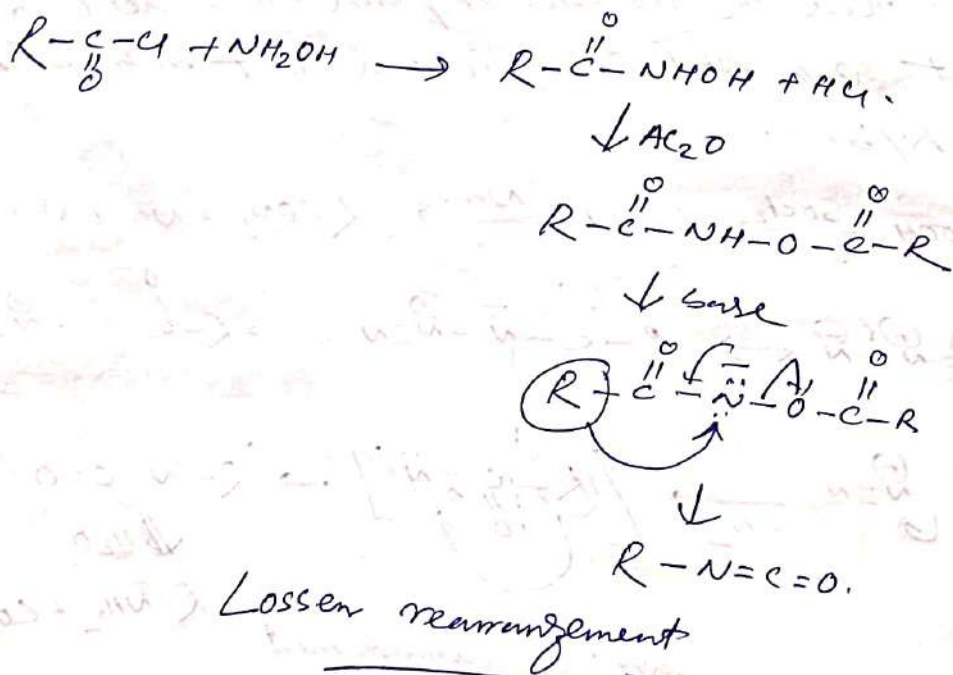 R-C-Cl + NH2OH → R-C-NHOH + HCl.
O O
↓ AC2O
O O
R-C-NH-O-C-R
↓ base
O O
R-C-N̈-O-C-R
↓
R-N=C=O.
Lossen rearrangement